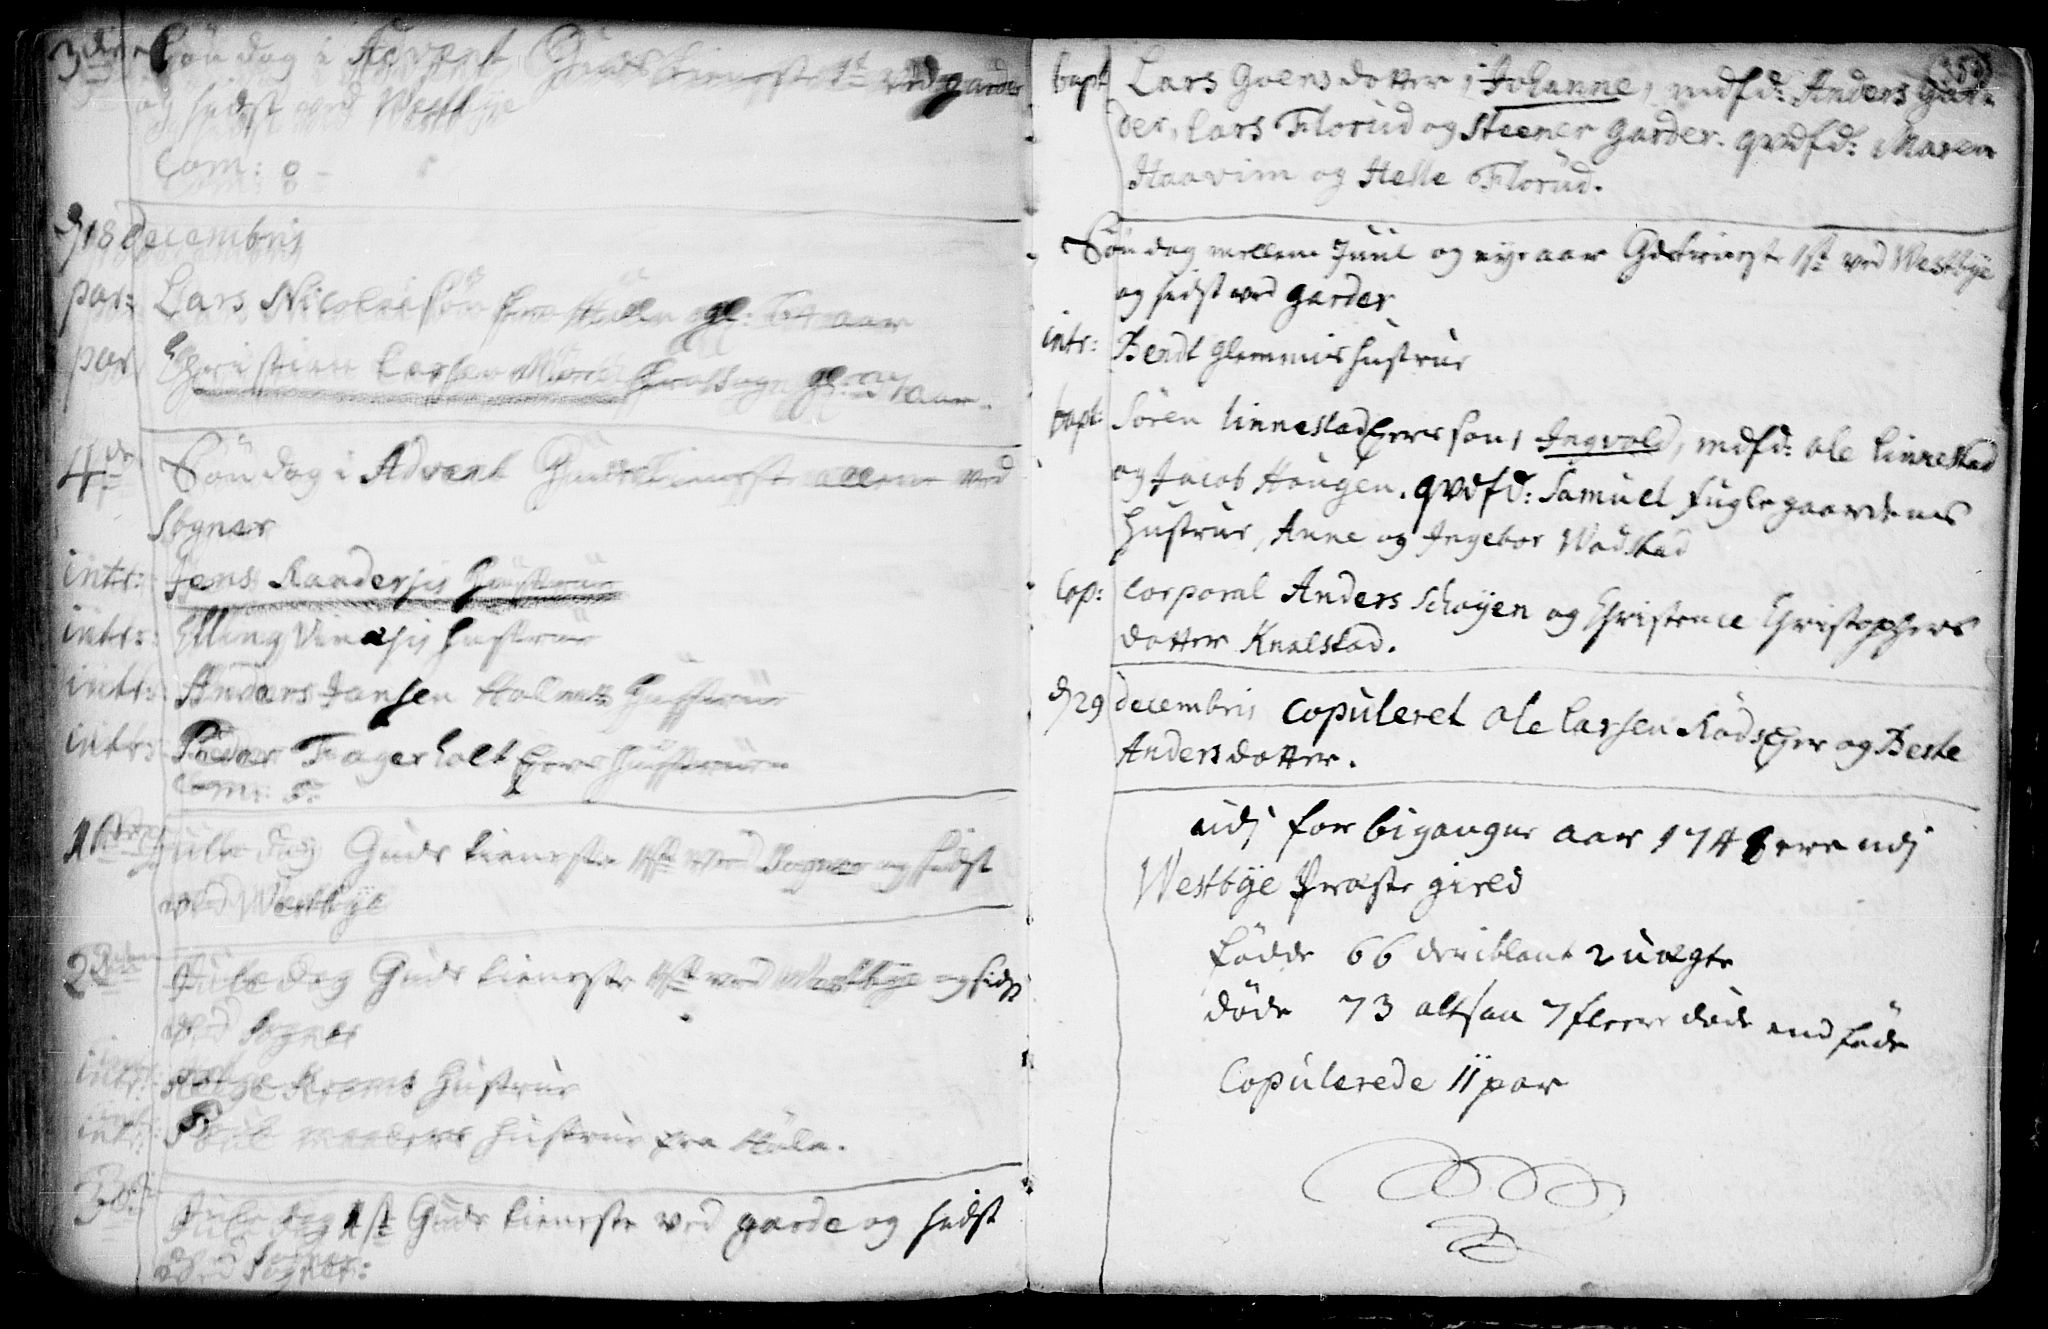 3de Søndag i Advent Guds tieneste 1st ved garder
og sidst ved Westbye
Com: 0
d 18 Decembris
par: Lars Nicolaisøn fra Hølen gl: 64 aar
par Christian Larsen gl: aar.
4de Søndag i Advent Guds tieneste allene ved
Sogner
intr: Jens Randersis Hustrue
intr: Elling Vinasis hustrue
intr: Anders Jansen Holmes Hustrue
intr: Peder Fagerholt hans hustrue
Com: 5.
1ste Jule dag Guds tieneste 1st ved Sogner og sidst
ved Westbye
2den Jule dag Guds tieneste 1st ved Westbye og sidst
ved Sogner
intr: Kroms Hustrue
intr: Poul hustrue fra Høln.
3die Jule dag 1st Guds tieneste ved garde og sidst
ved Sogner:
353
bapt Lars Goens dotter, Johanne, mdfd: Anders Gar-
der, Lars Florud og Steener Garder. qvdfd: Maren
Haavim og Helle Florud.
Søndag mellem Juul og nye aar Gds tieneste 1st ved Westbye
og sidst ved garder
intr: Bendt Glemmis hustrue
bapt: Søren Linnestad hans søn, Ingvold, mdfd: Ole Linnestad
og Jacob Haugen. qvdfd: Samuel Fuglegaardens
Hustrue, Anne og Ingebor Wadstad
Cop: Corporal Anders Schøyen og Christence Christophers
dotter Knalstad.
d 29 Decembris Copuleret Ole Larsen Røds og Berte
Andersdotter.
udj forbigangne aar 1748 ere udj
Westbye Præstegield
fødde 66 deriblant 2 uægte
døde 73 altsaa 7 fleere døde end føde
Copulerede 11 par